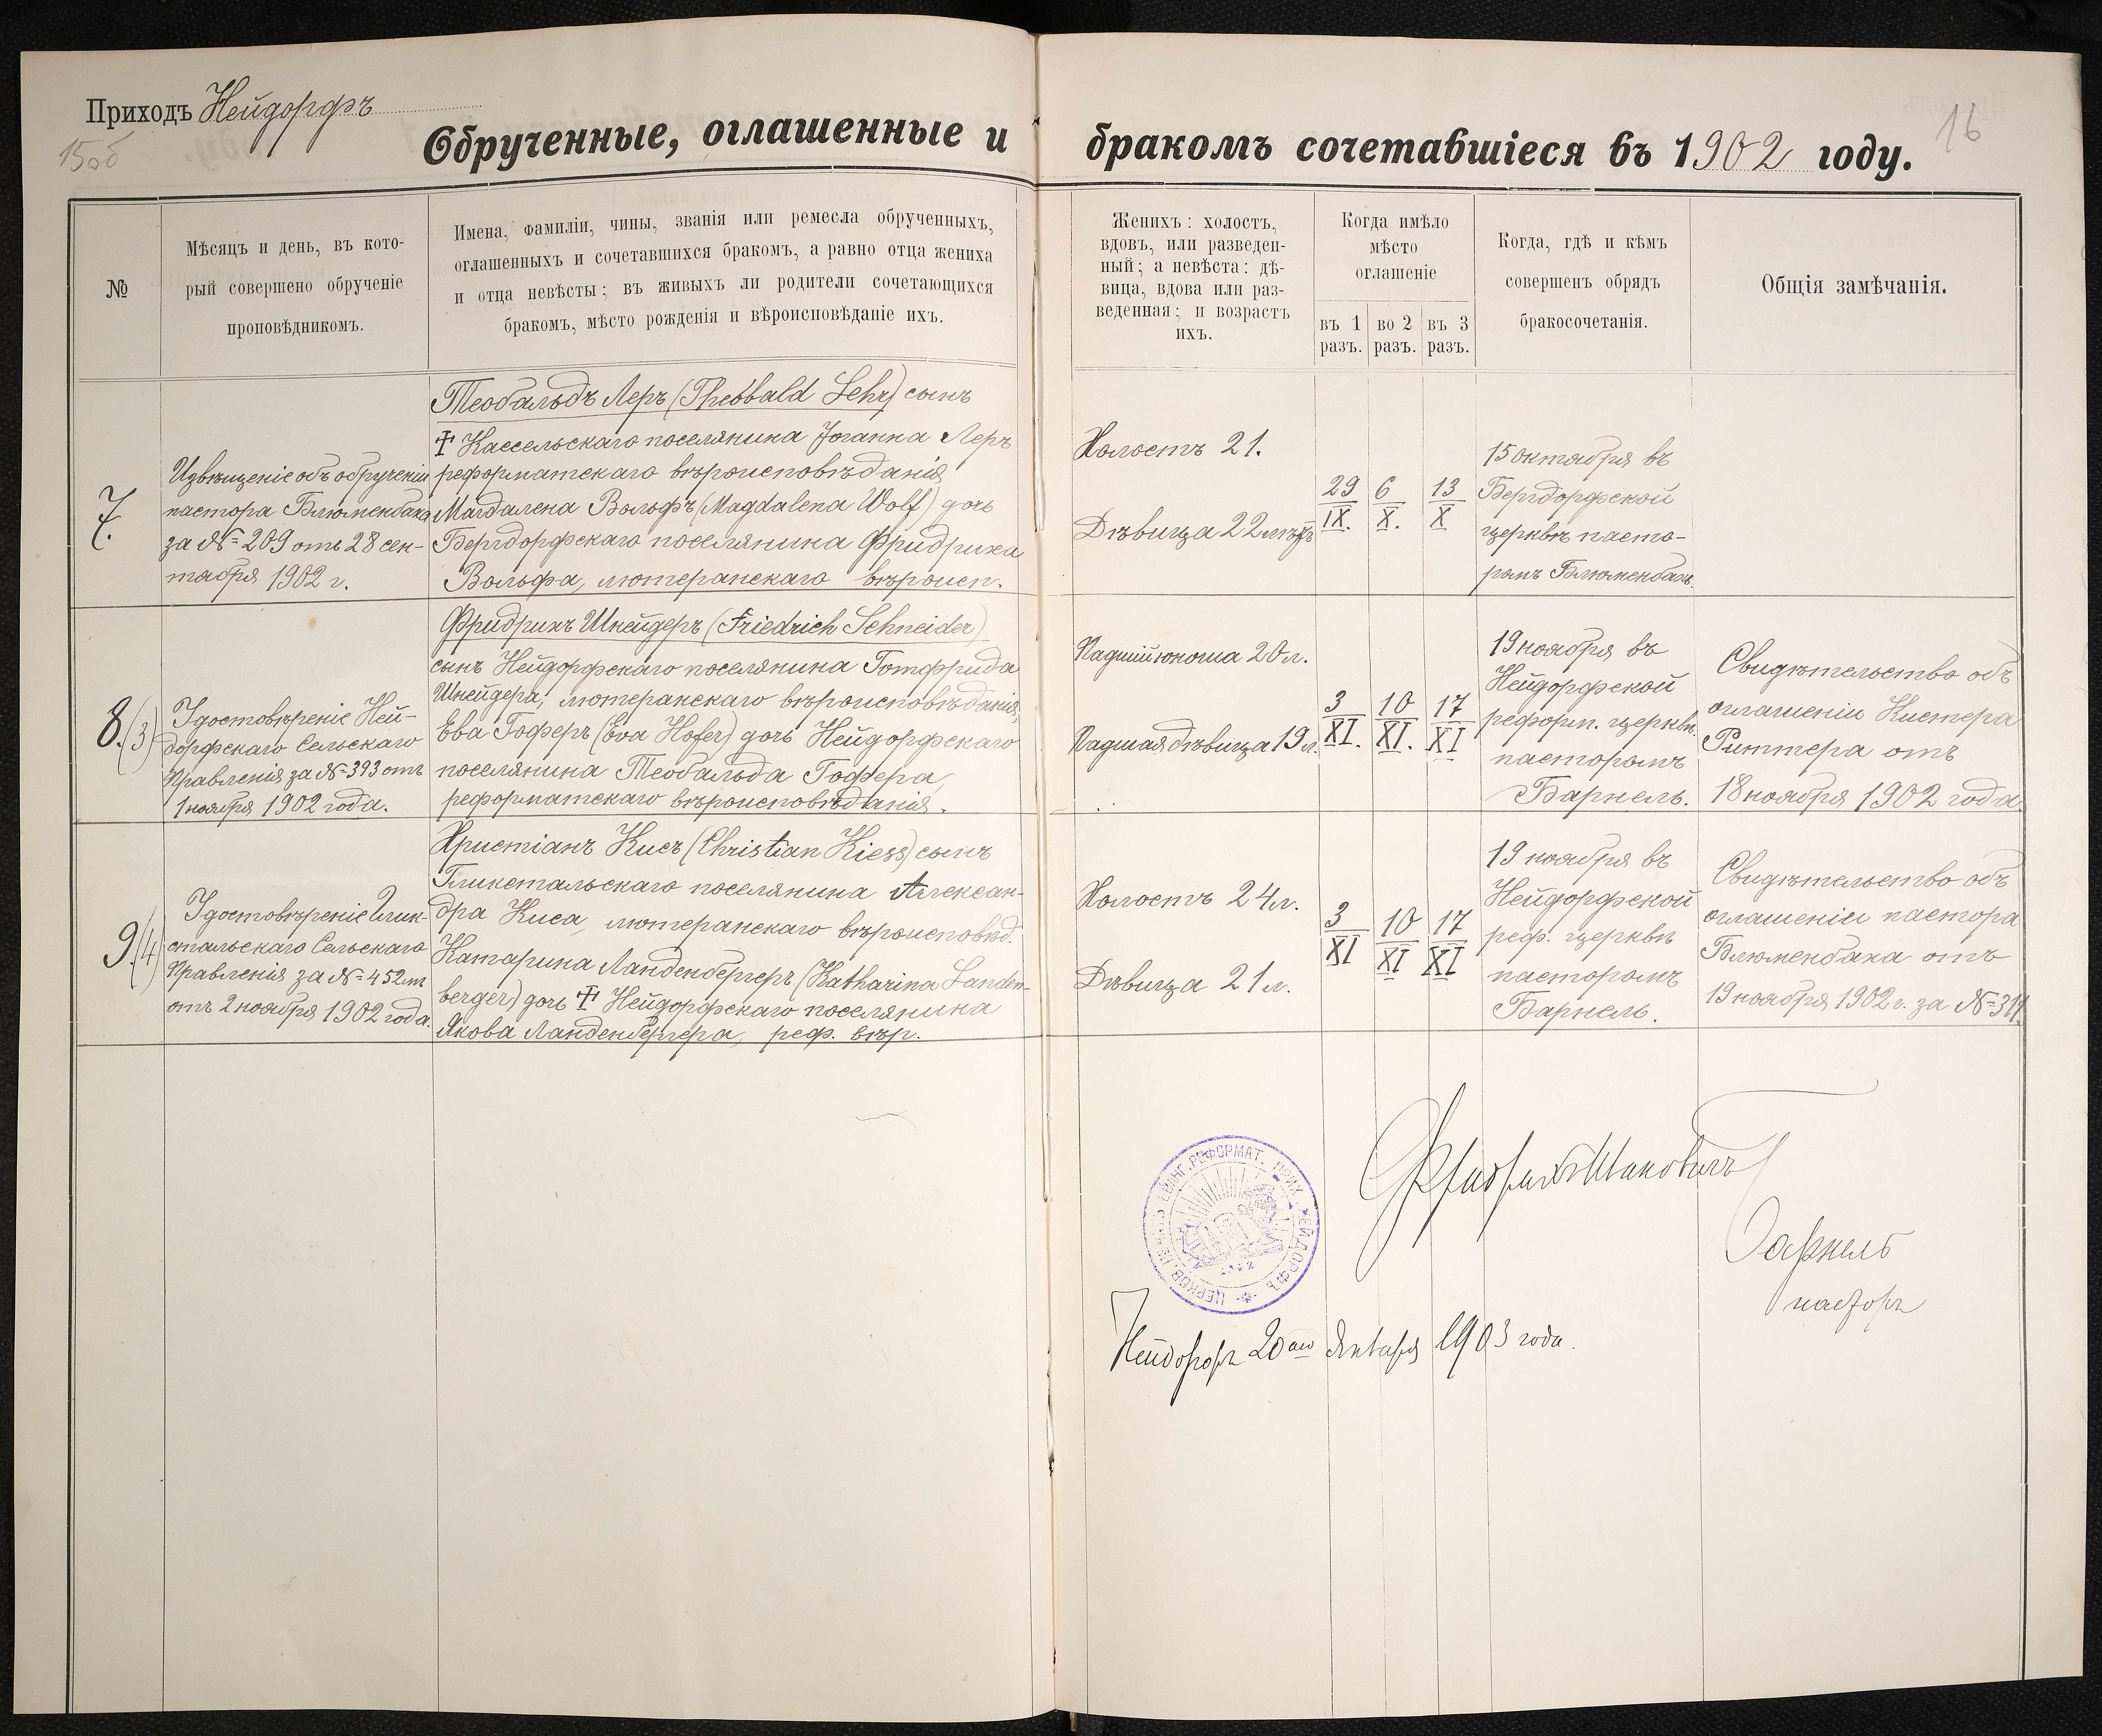 Приходъ Нейдорфъ
15об
16
Обрученные, оглашенные и бракомъ сочетавшіеся въ 1902 году.
№
Мѣсяцъ и день, въ кото-
рый совершено обрученіе
проповѣдникомъ.
Имена, фамиліи, чины, званія или ремесла обрученныхъ,
оглашенныхъ и сочетавшихся бракомъ, а равно отца жениха
и отца невѣсты; въ живыхъ ли родители сочетающихся
бракомъ, мѣсто рожденія и вѣроисповѣданіе ихъ.
Женихъ: холостъ,
вдовъ, или разведен-
ный; а невѣста: дѣ-
вица, вдова или раз-
веденная; и возрастъ
ихъ.
Когда имѣло
мѣсто
оглашеніе
въ 1 разъ.
во 2 разъ.
въ 3 разъ.
Когда, гдѣ и кѣмъ
совершенъ обрядъ
бракосочетанія.
Общія замѣчанія.
7.
Извѣщеніе объ обрученіи
пастора Блюменбаха
за № 209 отъ 28 сен-
тября 1902 г.
Теобальдъ Леръ (Theobald Lehr) сынъ
‡ Кассельскаго поселянина Іоганна Леръ
реформатскаго вѣроисповѣданія
Магдалена Вольфъ (Magdalena Wolf) дочь
Бергдорфскаго поселянина Фридриха
Вольфа, лютеранскаго вѣроисп.
Холостъ 21.
Дѣвица 22 лѣтъ
29 IX.
6 X.
13 X
15 октября въ
Бергдорфской
церквѣ пасто-
ромъ Блюменбахъ.
8.(3)
Удостовѣреніе Ней-
дорфскаго Сельскаго
Правленія за № 393 отъ
1 ноября 1902 года.
Фридрихъ Шнейдеръ (Friedrich Schneider)
сынъ Нейдорфскаго поселянина Готфрида
Шнейдера, лютеранскаго вѣроисповѣданія,
Ева Гоферъ (Eva Hofer) дочь Нейдорфскаго
поселянина Теобальда Гофера,
реформатскаго вѣроисповѣданія.
Падшій юноша 20 л.
Падшая дѣвица 19 л.
3 XI.
10 XI.
17 XI
19 ноября въ
Нейдорфской
реформ. церквѣ
пасторомъ
Барнель.
Свидѣтельство объ
оглашеніи Кистера
Риттера отъ
18 ноября 1902 года.
9.(4)
Удостовѣреніе Глик-
стальскаго Сельскаго
Правленія за № 452
отъ 2 ноября 1902 года.
Христіанъ Кисъ (Christian Kiess) сынъ
Гликстальскаго поселянина Алексан-
дра Киса, лютеранскаго вѣроисповѣд.
Катарина Ланденбергеръ (Katharina Landen-
berger) дочь ‡ Нейдорфскаго поселянина
Якова Ланденбергера, реф. вѣр.
Холостъ 24 л.
Дѣвица 21 л.
3 XI
10 XI
17 XI
19 ноября въ
Нейдорфской
реф. церквѣ
пасторомъ
Барнель.
Свидѣтельство объ
оглашеніи пастора
Блюменбаха отъ
19 ноября 1902 г. за № 311.
РЕФОРМАТ. ПРИХ. НЕЙДОРФЪ
ЦЕРКОВ.
Барнель
пасторъ
Нейдорфъ 20 го Января 1903 года.